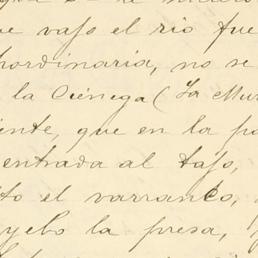 e vajo el rio fue
ordinaria, no se
la Ciénega (La Mur
iente, que en la pa
entrada al tajo,
to el varranco,
yebo la presa,